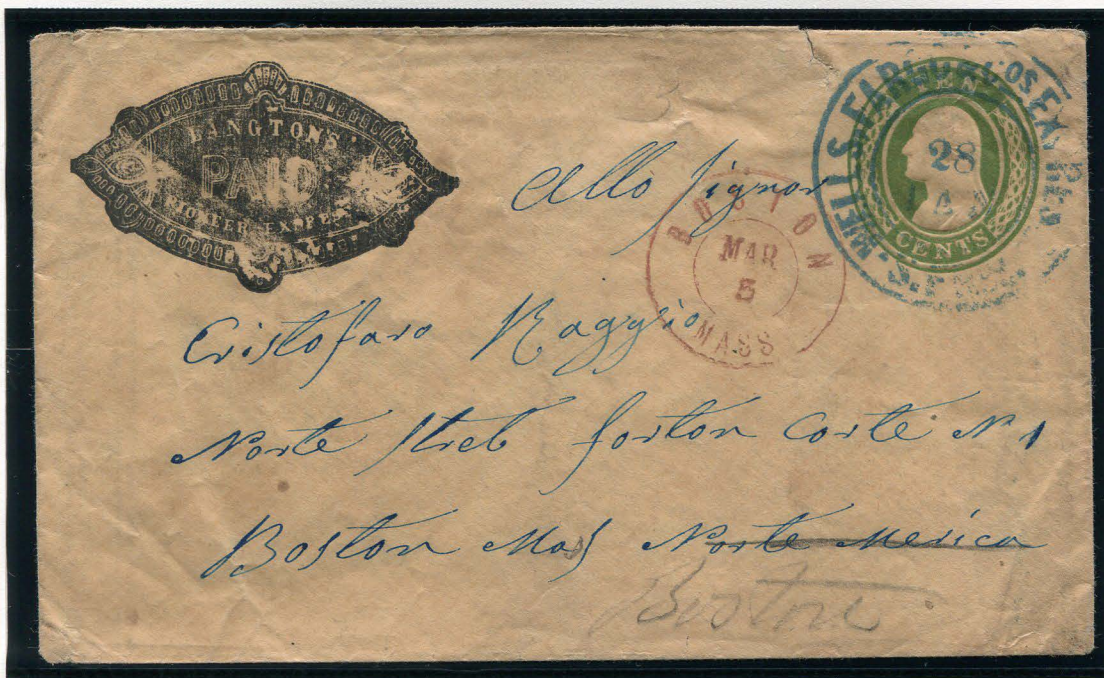 LANGTON'S
PAID
PIONEER EXPRESS
WELLS FARGO & COS EX.
28
CENTS
BOSTON
MAR
5
MASS
Allo Signor
Cristofaro Raggio
Norte Stret forton Corte N 1
Boston Mas Norte Merica
Boston